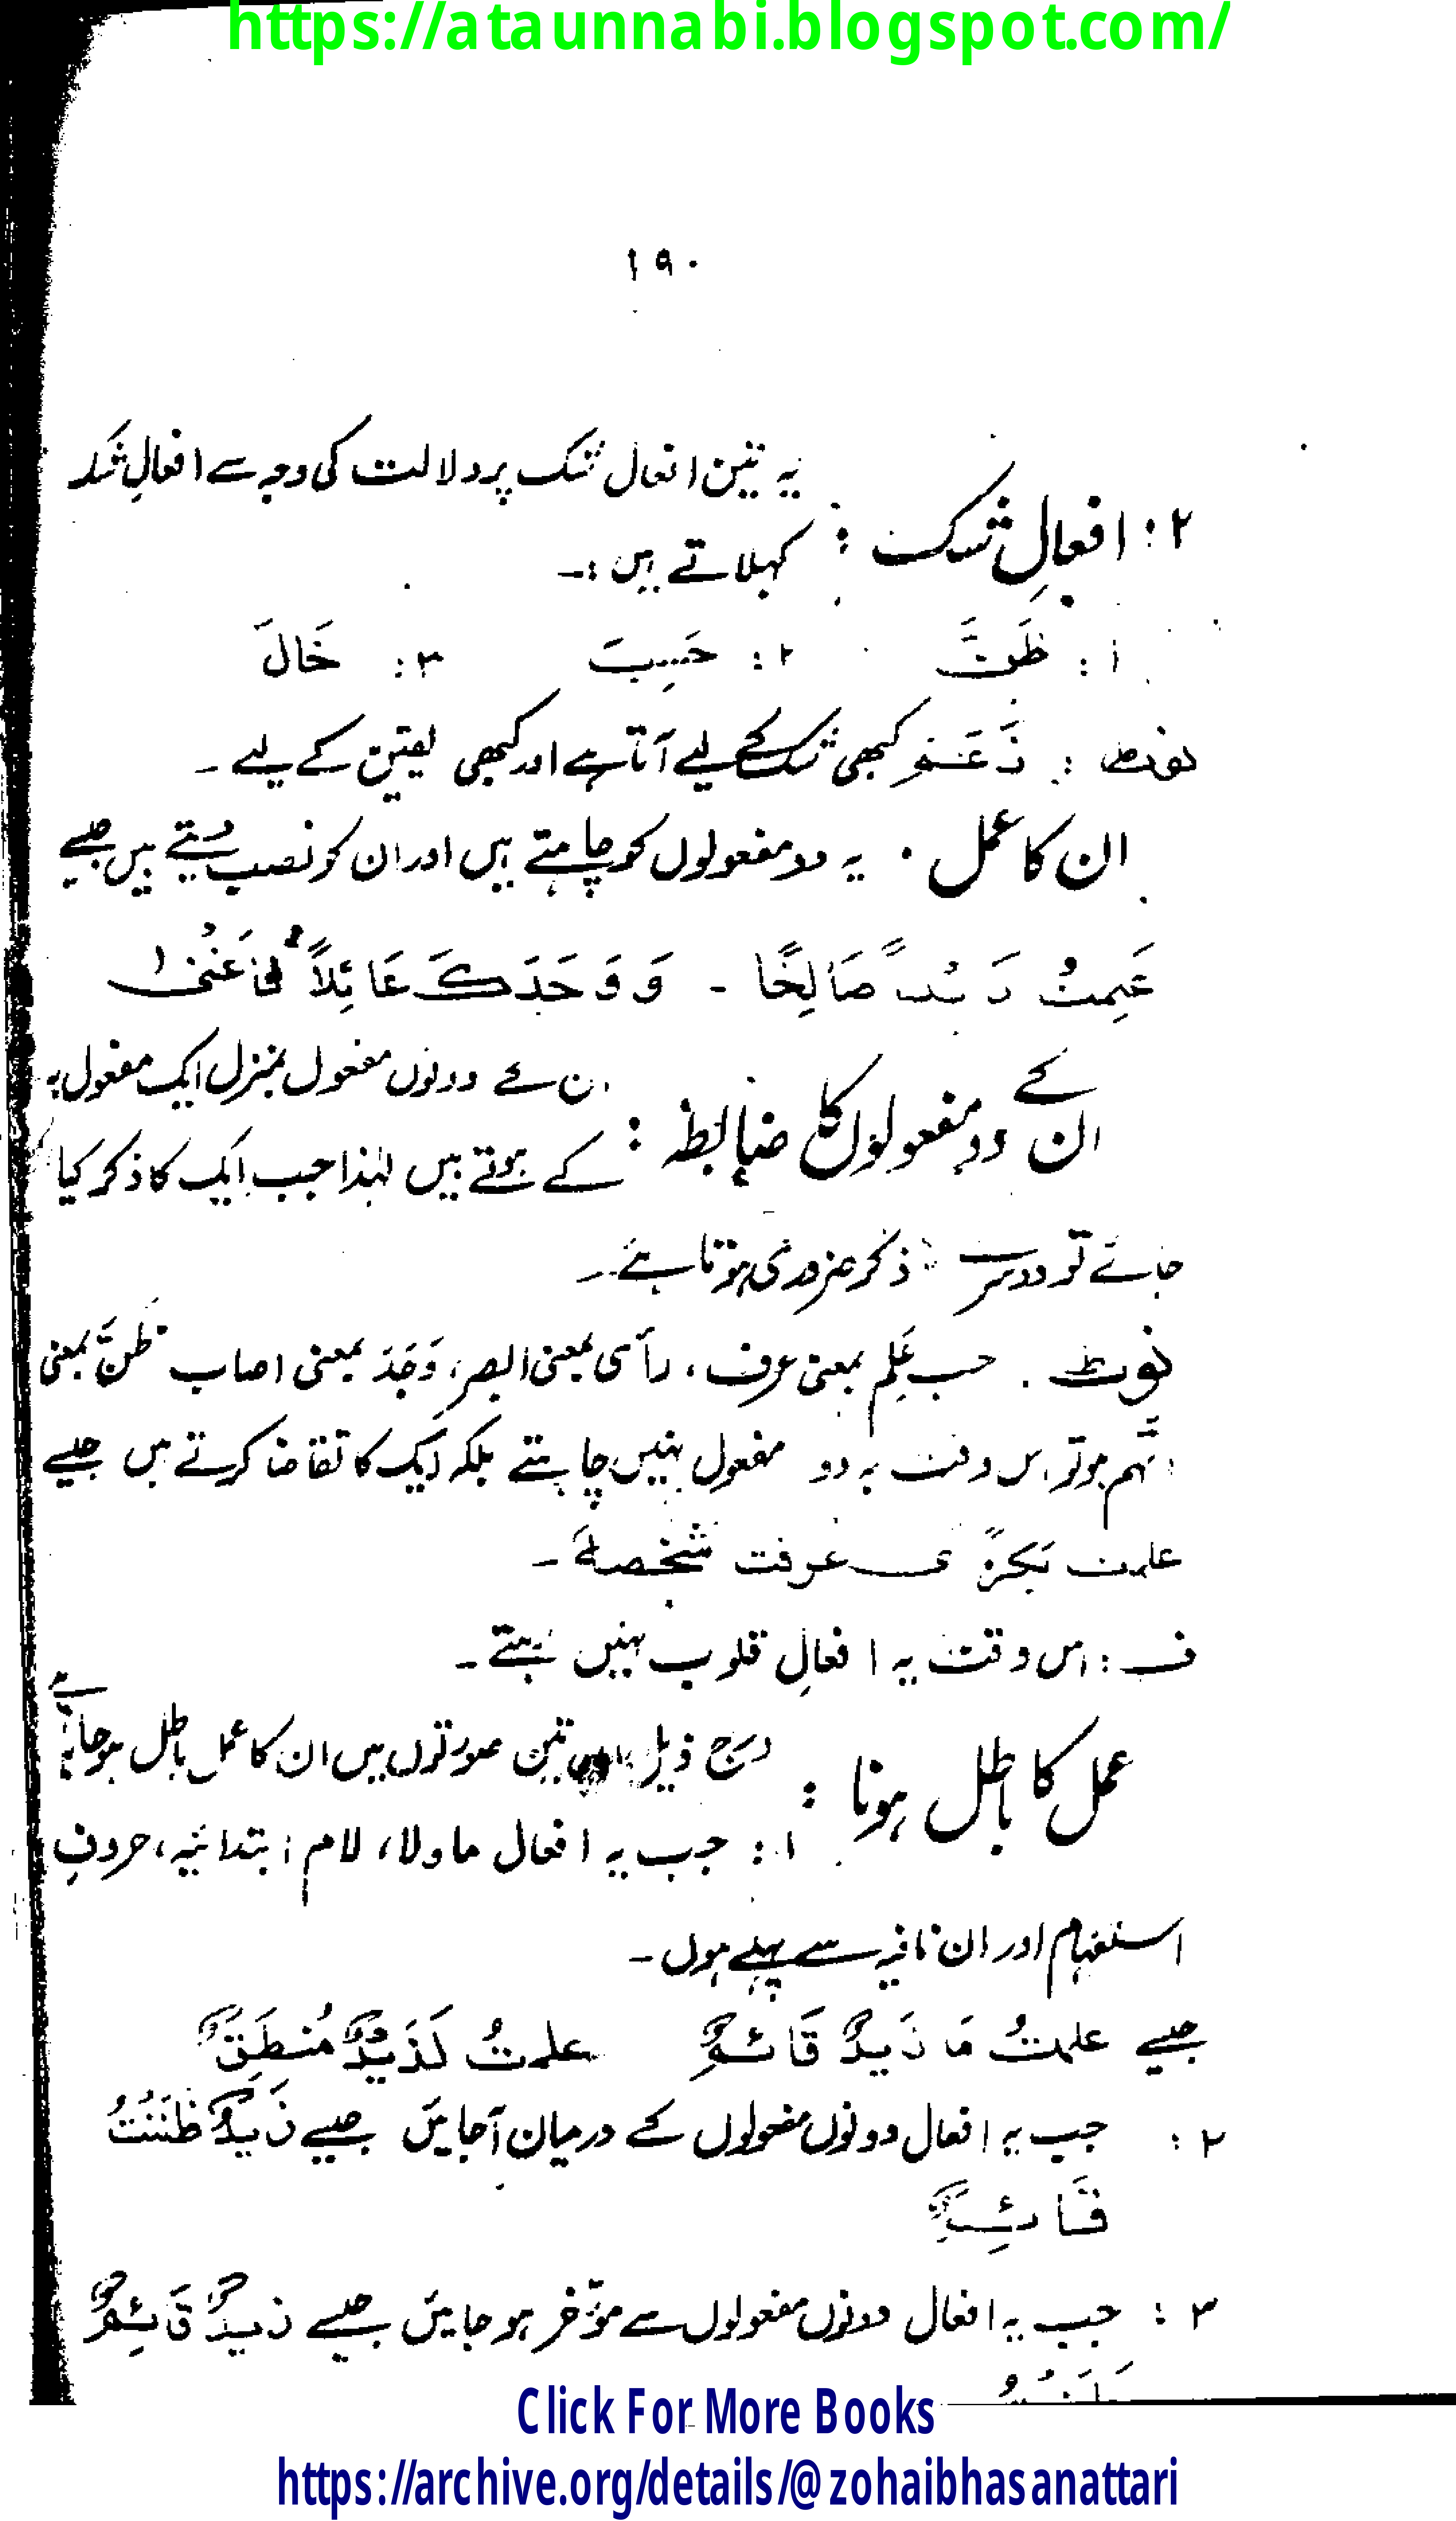 https://ataunnabi.blogspot.com/
۱۹۰
۲: افعالِ شک : یہ تین افعال شک پر دلالت کی وجہ سے افعالِ شک
کہلاتے ہیں :۔
۱: ظَنَّ ۲: حَسِبَ ۳: خَالَ
نوٹ : زَعَمَ کبھی شک کے لیے آتا ہے اور کبھی یقین کے لیے ۔
ان کا عمل . یہ دو مفعولوں کو چاہتے ہیں اور ان کو نصب دیتے ہیں جیسے
عَلِمتُ زَیْداً صَالِحًا ۔ وَ وَجَدَكَ عَائِلاً فَاَغْنٰی
ان کے دو مفعولوں کا ضابطہ : ان کے دونوں مفعول بمنزل ایک مفعول بہ
کے ہوتے ہیں لہٰذا جب ایک کا ذکر کیا
جائے تو دوسرے ذکر ضروری ہوتا ہے ۔
نوٹ . جب عَلِم بمعنی عرف ، رأی بمعنی البصر، وَجَدَ بمعنی اصاب ظنَّ بمعنی
اتَّہم ہو تو اس وقت یہ دو مفعول نہیں چاہتے بلکہ ایک کا تقاضا کرتے ہیں جیسے
علمت بَکرًا ی عرفت شخصہٗ ۔
ف : اس وقت یہ افعالِ قلوب نہیں رہتے ۔
عمل کا باطل ہونا : درج ذیل تین صورتوں میں ان کا عمل باطل ہو جاتا ہے
۱ : جب یہ افعال ما ولا، لام ابتدائیہ، حروفِ
استفہام اور ان نافیہ سے پہلے ہوں ۔
جیسے علمتُ مَا زَیدٌ قَائمٌ علمتُ لَزَیْدٌ مُنطَلِقٌ
۲ : جب یہ افعال دونوں مفعولوں کے درمیان آجائیں جیسے زَیدٌ ظَنَنْتُ
قَائِمٌ
۳ : جب یہ افعال دونوں مفعولوں سے مؤخر ہو جائیں جیسے زَیدٌ قَائِمٌ
Click For More Books
https://archive.org/details/@zohaibhasanattari